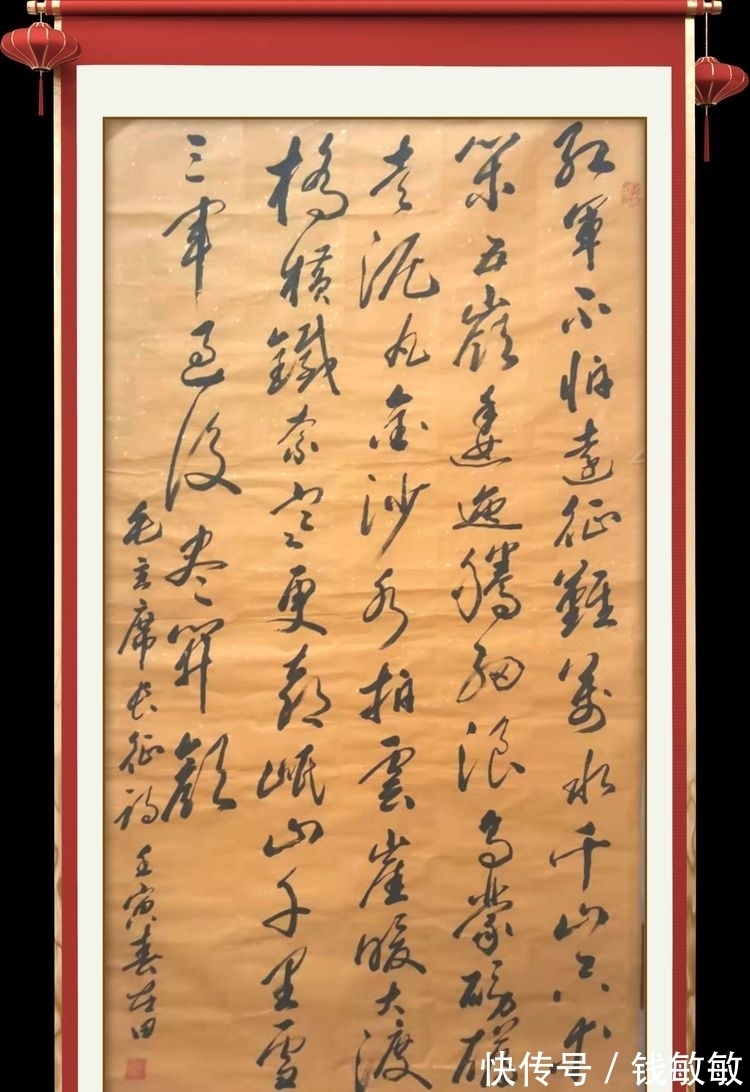 红軍不怕遠征難萬水千山只等
閑五嶺逶迤騰細浪烏蒙磅礴
走泥丸金沙水拍雲崖暖大渡
橋横鐵索寒更喜岷山千里雪
三軍過後尽開顏
毛主席长征詩 壬寅春田
快传号 / 钱敏敏